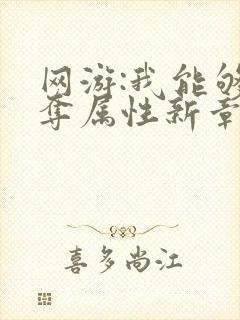 网游:我能够
夺属性新章
喜多尚江